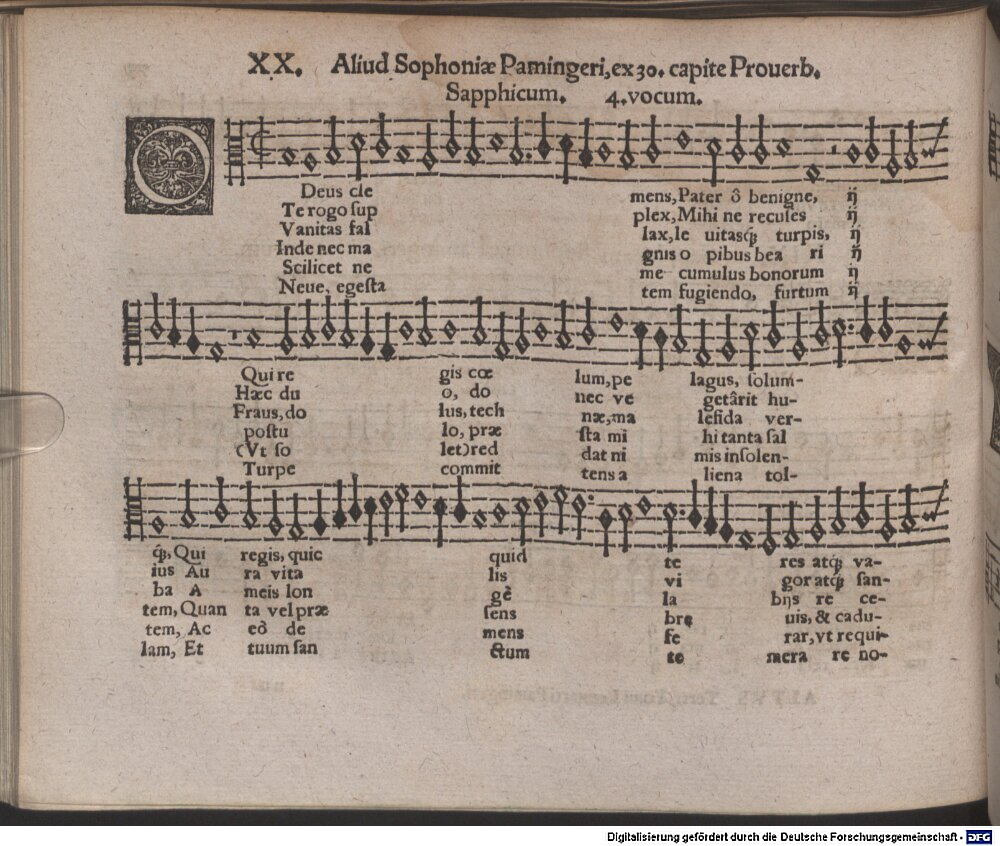 XX. Aliud Sophoniæ Pamingeri, ex 30. capite Prouerb.
Sapphicum. 4. vocum.
O
Deus cle mens, Pater ô benigne, ij
Te rogo sup plex, Mihi ne recuses ij
Vanitas fal lax, le uitasq́; turpis, ij
Inde nec ma gnis o pibus bea ri ij
Scilicet ne me cumulus bonorum ij
Neue, egesta tem fugiendo, furtum ij
Qui re gis cœ lum, pe lagus, solum-
Hæc du o, do nec ve getârit hu-
Fraus, do lus, tech næ, ma lefida ver-
postu lo, præ sta mi hi tanta sal
(Vt so let) red dat ni mis insolen-
Turpe commit tens a liena tol-
q́;, Qui regis, quic quid te res atq́; va-
ius Au ra vita lis vi gor atq́; san-
ba A meis lon gè la bijs re ce-
tem, Quan ta vel præ sens bre uis, & cadu-
tem, Ac eò de mens fe rar, vt requi-
lam, Et tuum san ctum te mera re no-
Digitalisierung gefördert durch die Deutsche Forschungsgemeinschaft - DFG